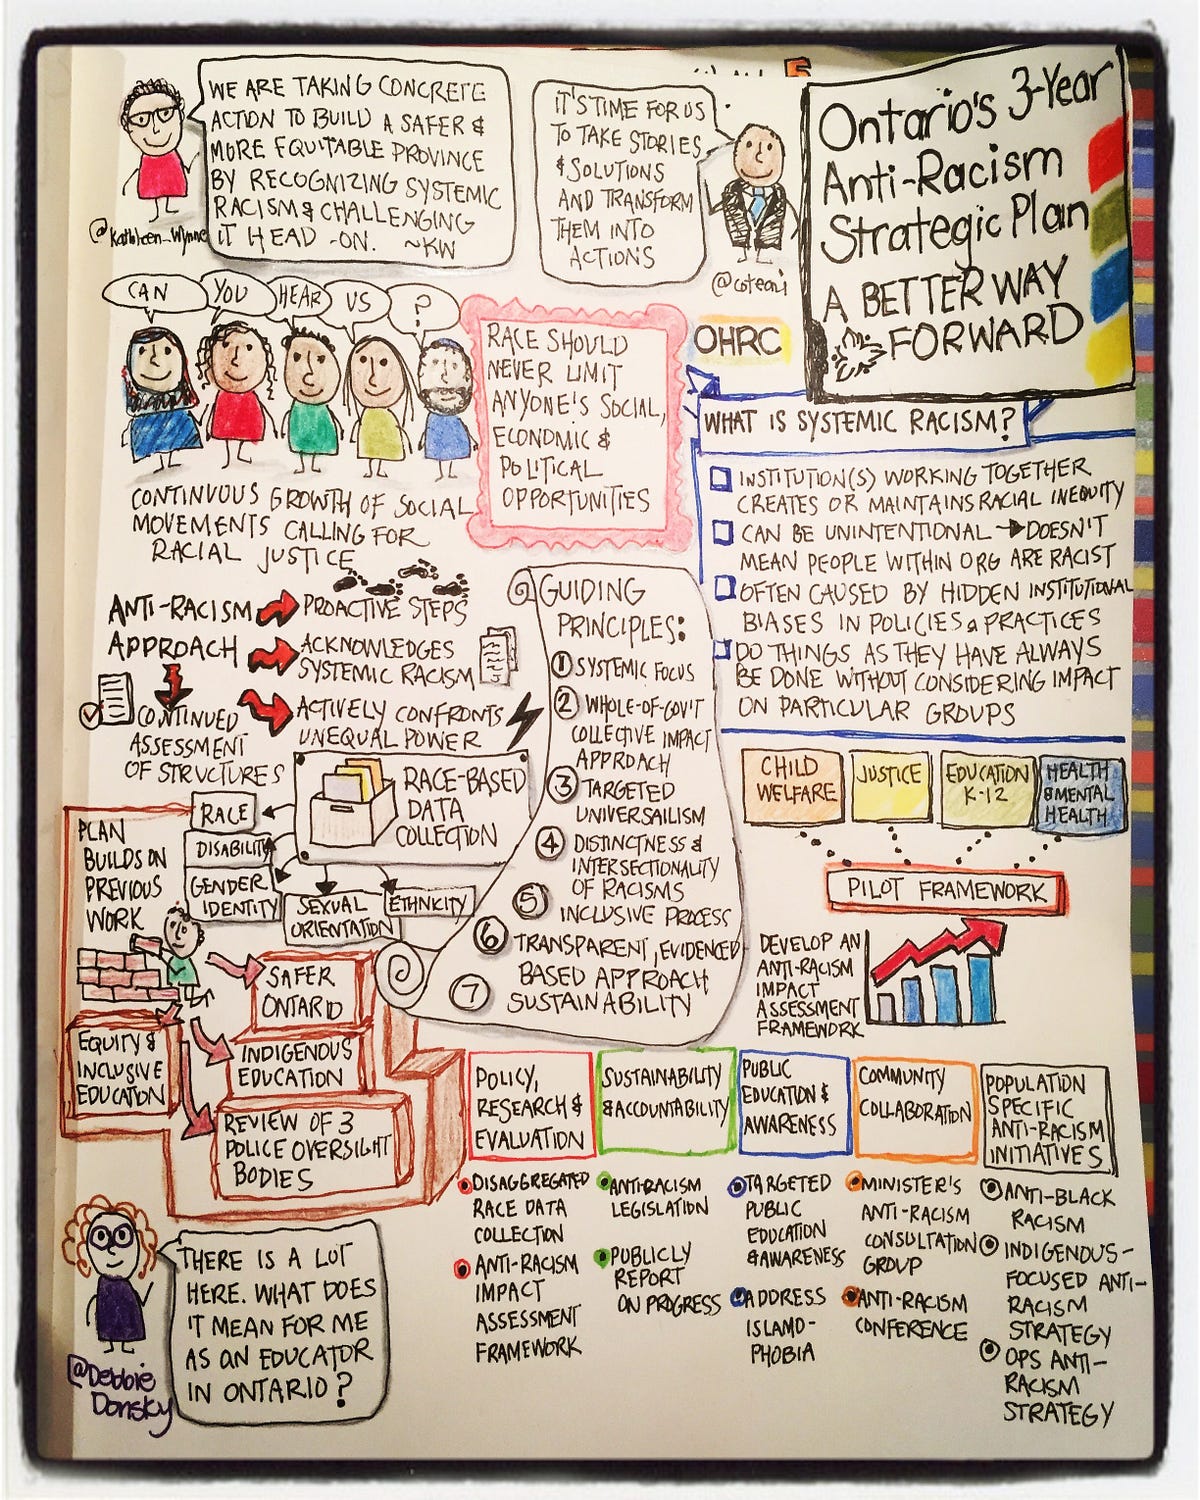 WE ARE TAKING CONCRETE
ACTION TO BUILD A SAFER &
MORE EQUITABLE PROVINCE
BY RECOGNIZING SYSTEMIC
RACISM & CHALLENGING
IT HEAD-ON. ~KW
@Kathleen_Wynne
IT'S TIME FOR US
TO TAKE STORIES
& SOLUTIONS
AND TRANSFORM
THEM INTO
ACTIONS
@coteau
Ontario's 3-Year
Anti-Racism
Strategic Plan
A BETTER WAY
FORWARD
CAN YOU HEAR US ?
CONTINUOUS GROWTH OF SOCIAL
MOVEMENTS CALLING FOR
RACIAL JUSTICE
RACE SHOULD
NEVER LIMIT
ANYONE'S SOCIAL,
ECONOMIC &
POLITICAL
OPPORTUNITIES
OHRC
WHAT IS SYSTEMIC RACISM?
INSTITUTION(S) WORKING TOGETHER
CREATES OR MAINTAINS RACIAL INEQUITY
CAN BE UNINTENTIONAL → DOESN'T
MEAN PEOPLE WITHIN ORG ARE RACIST
OFTEN CAUSED BY HIDDEN INSTITUTIONAL
BIASES IN POLICIES & PRACTICES
DO THINGS AS THEY HAVE ALWAYS
BE DONE WITHOUT CONSIDERING IMPACT
ON PARTICULAR GROUPS
ANTI-RACISM
APPROACH
PROACTIVE STEPS
ACKNOWLEDGES
SYSTEMIC RACISM
ACTIVELY CONFRONTS
UNEQUAL POWER
CONTINUED
ASSESSMENT
OF STRUCTURES
GUIDING
PRINCIPLES:
1 SYSTEMIC FOCUS
2 WHOLE-OF-GOV'T
COLLECTIVE IMPACT
APPROACH
3 TARGETED
UNIVERSALISM
4 DISTINCTNESS &
INTERSECTIONALITY
OF RACISMS
5 INCLUSIVE PROCESS
6 TRANSPARENT, EVIDENCED
BASED APPROACH
7 SUSTAINABILITY
RACE-BASED
DATA
COLLECTION
RACE
DISABILITY
GENDER
IDENTITY
SEXUAL
ORIENTATION
ETHNICITY
CHILD
WELFARE
JUSTICE
EDUCATION
K-12
HEALTH
& MENTAL
HEALTH
PILOT FRAMEWORK
DEVELOP AN
ANTI-RACISM
IMPACT
ASSESSMENT
FRAMEWORK
PLAN
BUILDS ON
PREVIOUS
WORK
SAFER
ONTARIO
EQUITY &
INCLUSIVE
EDUCATION
INDIGENOUS
EDUCATION
REVIEW OF 3
POLICE OVERSIGHT
BODIES
POLICY,
RESEARCH &
EVALUATION
DISAGGREGATED
RACE DATA
COLLECTION
ANTI-RACISM
IMPACT
ASSESSMENT
FRAMEWORK
SUSTAINABILITY
& ACCOUNTABILITY
ANTI-RACISM
LEGISLATION
PUBLICLY
REPORT
ON PROGRESS
PUBLIC
EDUCATION &
AWARENESS
TARGETED
PUBLIC
EDUCATION
& AWARENESS
ADDRESS
ISLAMO-
PHOBIA
COMMUNITY
COLLABORATION
MINISTER'S
ANTI-RACISM
CONSULTATION
GROUP
ANTI-RACISM
CONFERENCE
POPULATION
SPECIFIC
ANTI-RACISM
INITIATIVES
ANTI-BLACK
RACISM
INDIGENOUS-
FOCUSED ANTI-
RACISM
STRATEGY
OPS ANTI-
RACISM
STRATEGY
THERE IS A LOT
HERE. WHAT DOES
IT MEAN FOR ME
AS AN EDUCATOR
IN ONTARIO?
@Debbie
Donsky